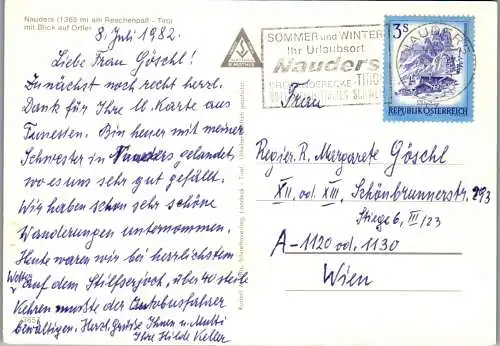 Nauders (1365 m) am Reschenpaß - Tirol
mit Blick auf Ortler
8. Juli 1982.
Liebe Frau Göschl!
Zunächst noch recht herzl.
Dank für Ihre U. Karte aus
Tunesien. Bin heuer mit meiner
Schwester in Nauders gelandet,
wo es uns sehr gut gefällt.
Wir haben schon sehr schöne
Wanderungen unternommen.
Heute waren wir bei herrlichstem
Wetter
auf dem Stilfserjoch, über 40 steile
Kehren mußte der Autobusfahrer
bewältigen. Herzl. Grüße Ihnen u. Mutti
Ihre Hilde Keller
SOMMER und WINTER
Ihr Urlaubsort
Nauders
TIROL
DREILÄNDERECKE
NAUDERS
3S
REPUBLIK ÖSTERREICH
Frau
Regier. R. Margarete Göschl
XII. od. XIII, Schönbrunnerstr. 293
Stiege 6, III/23
A-1120 od. 1130
Wien